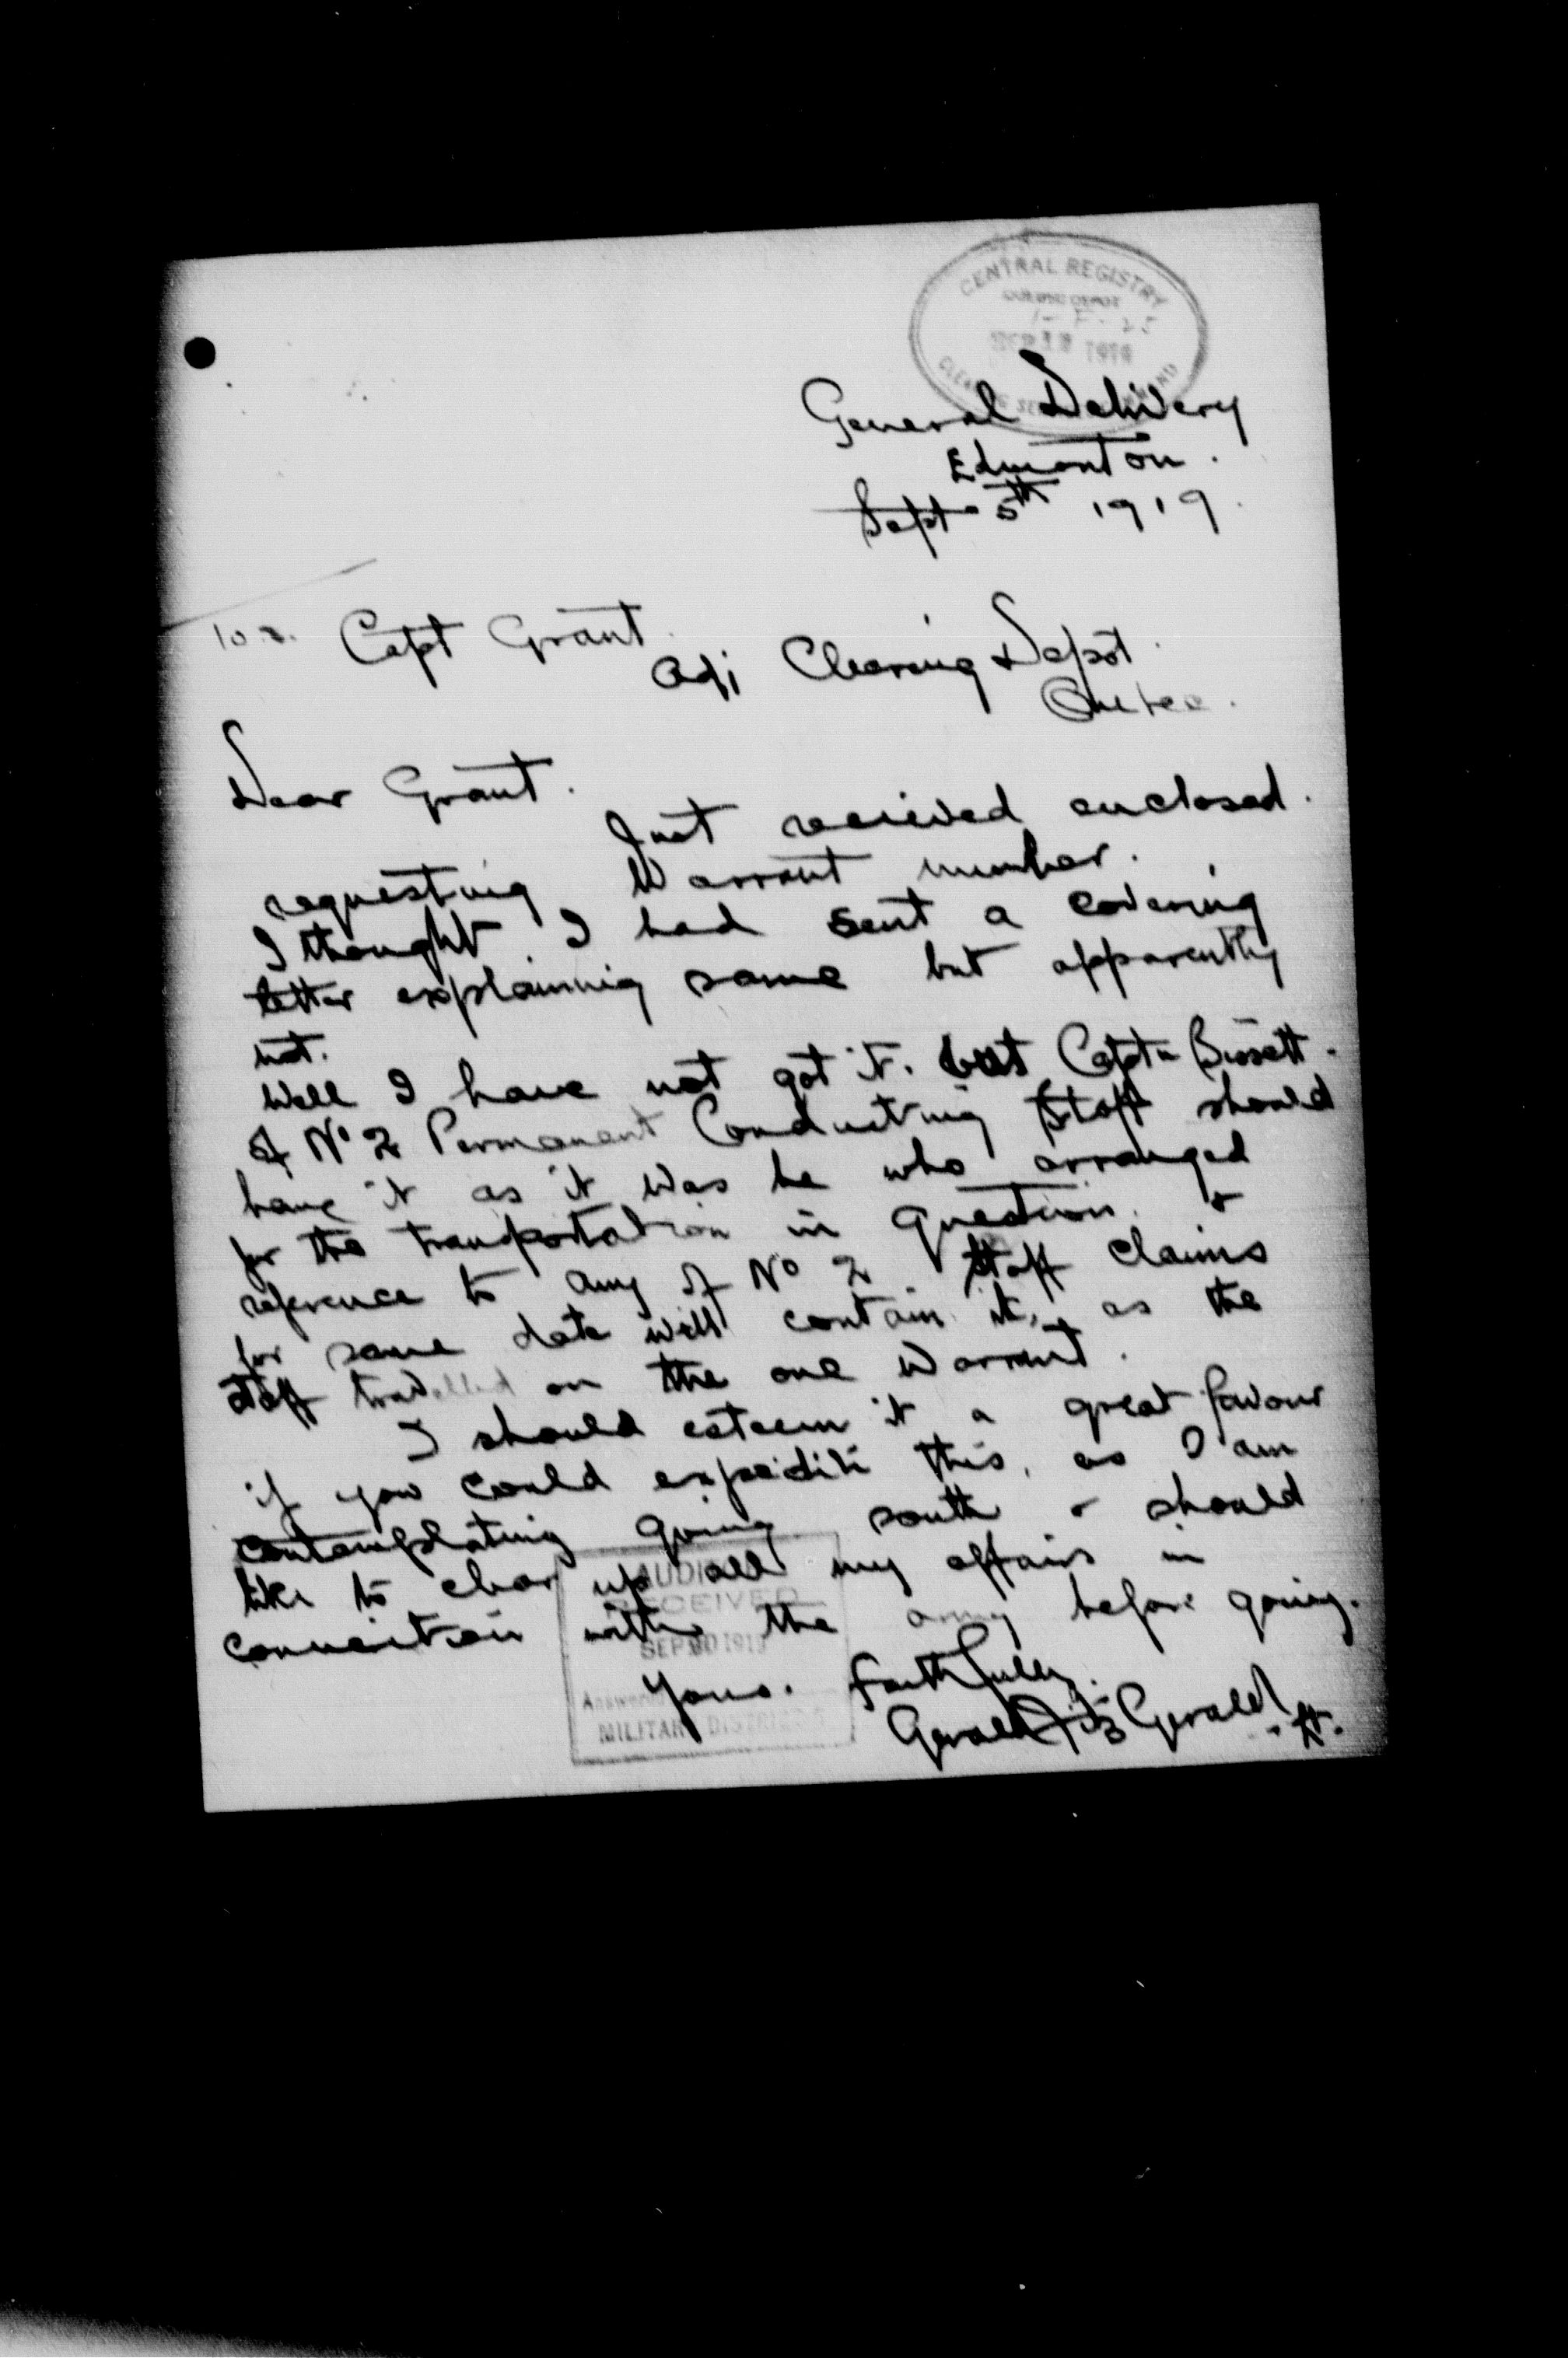 CENTRAL REGISTRY
QUEBEC DEPOT
1919
General Delivery
Edmonton.
Sept 5th 1919.
Capt Grant.
Adj Clearing Depot.
Quebec.
Dear Grant.
Just recieved enclosed.
requesting Warrant number.
I thought I had sent a covering
letter explaining same but apparently
not.
Well I have not got it. but Captn Bissett.
of No 2 Permanent Conducting Staff should
have it as it was he who arranged
for the transportation in question. &
reference to any of No 2 Staff claims
for same date will contain it, as the
staff travelled on the one Warrant.
I should esteem it a great favour
if you could expedite this, as I am
contemplating going south & should
like to clear up all my affairs in
connection with the army before going.
Yours. Faithfully.
Gerald FitzGerald. Lt.
RECEIVED
SEP 1919
MILITARY DISTRICT